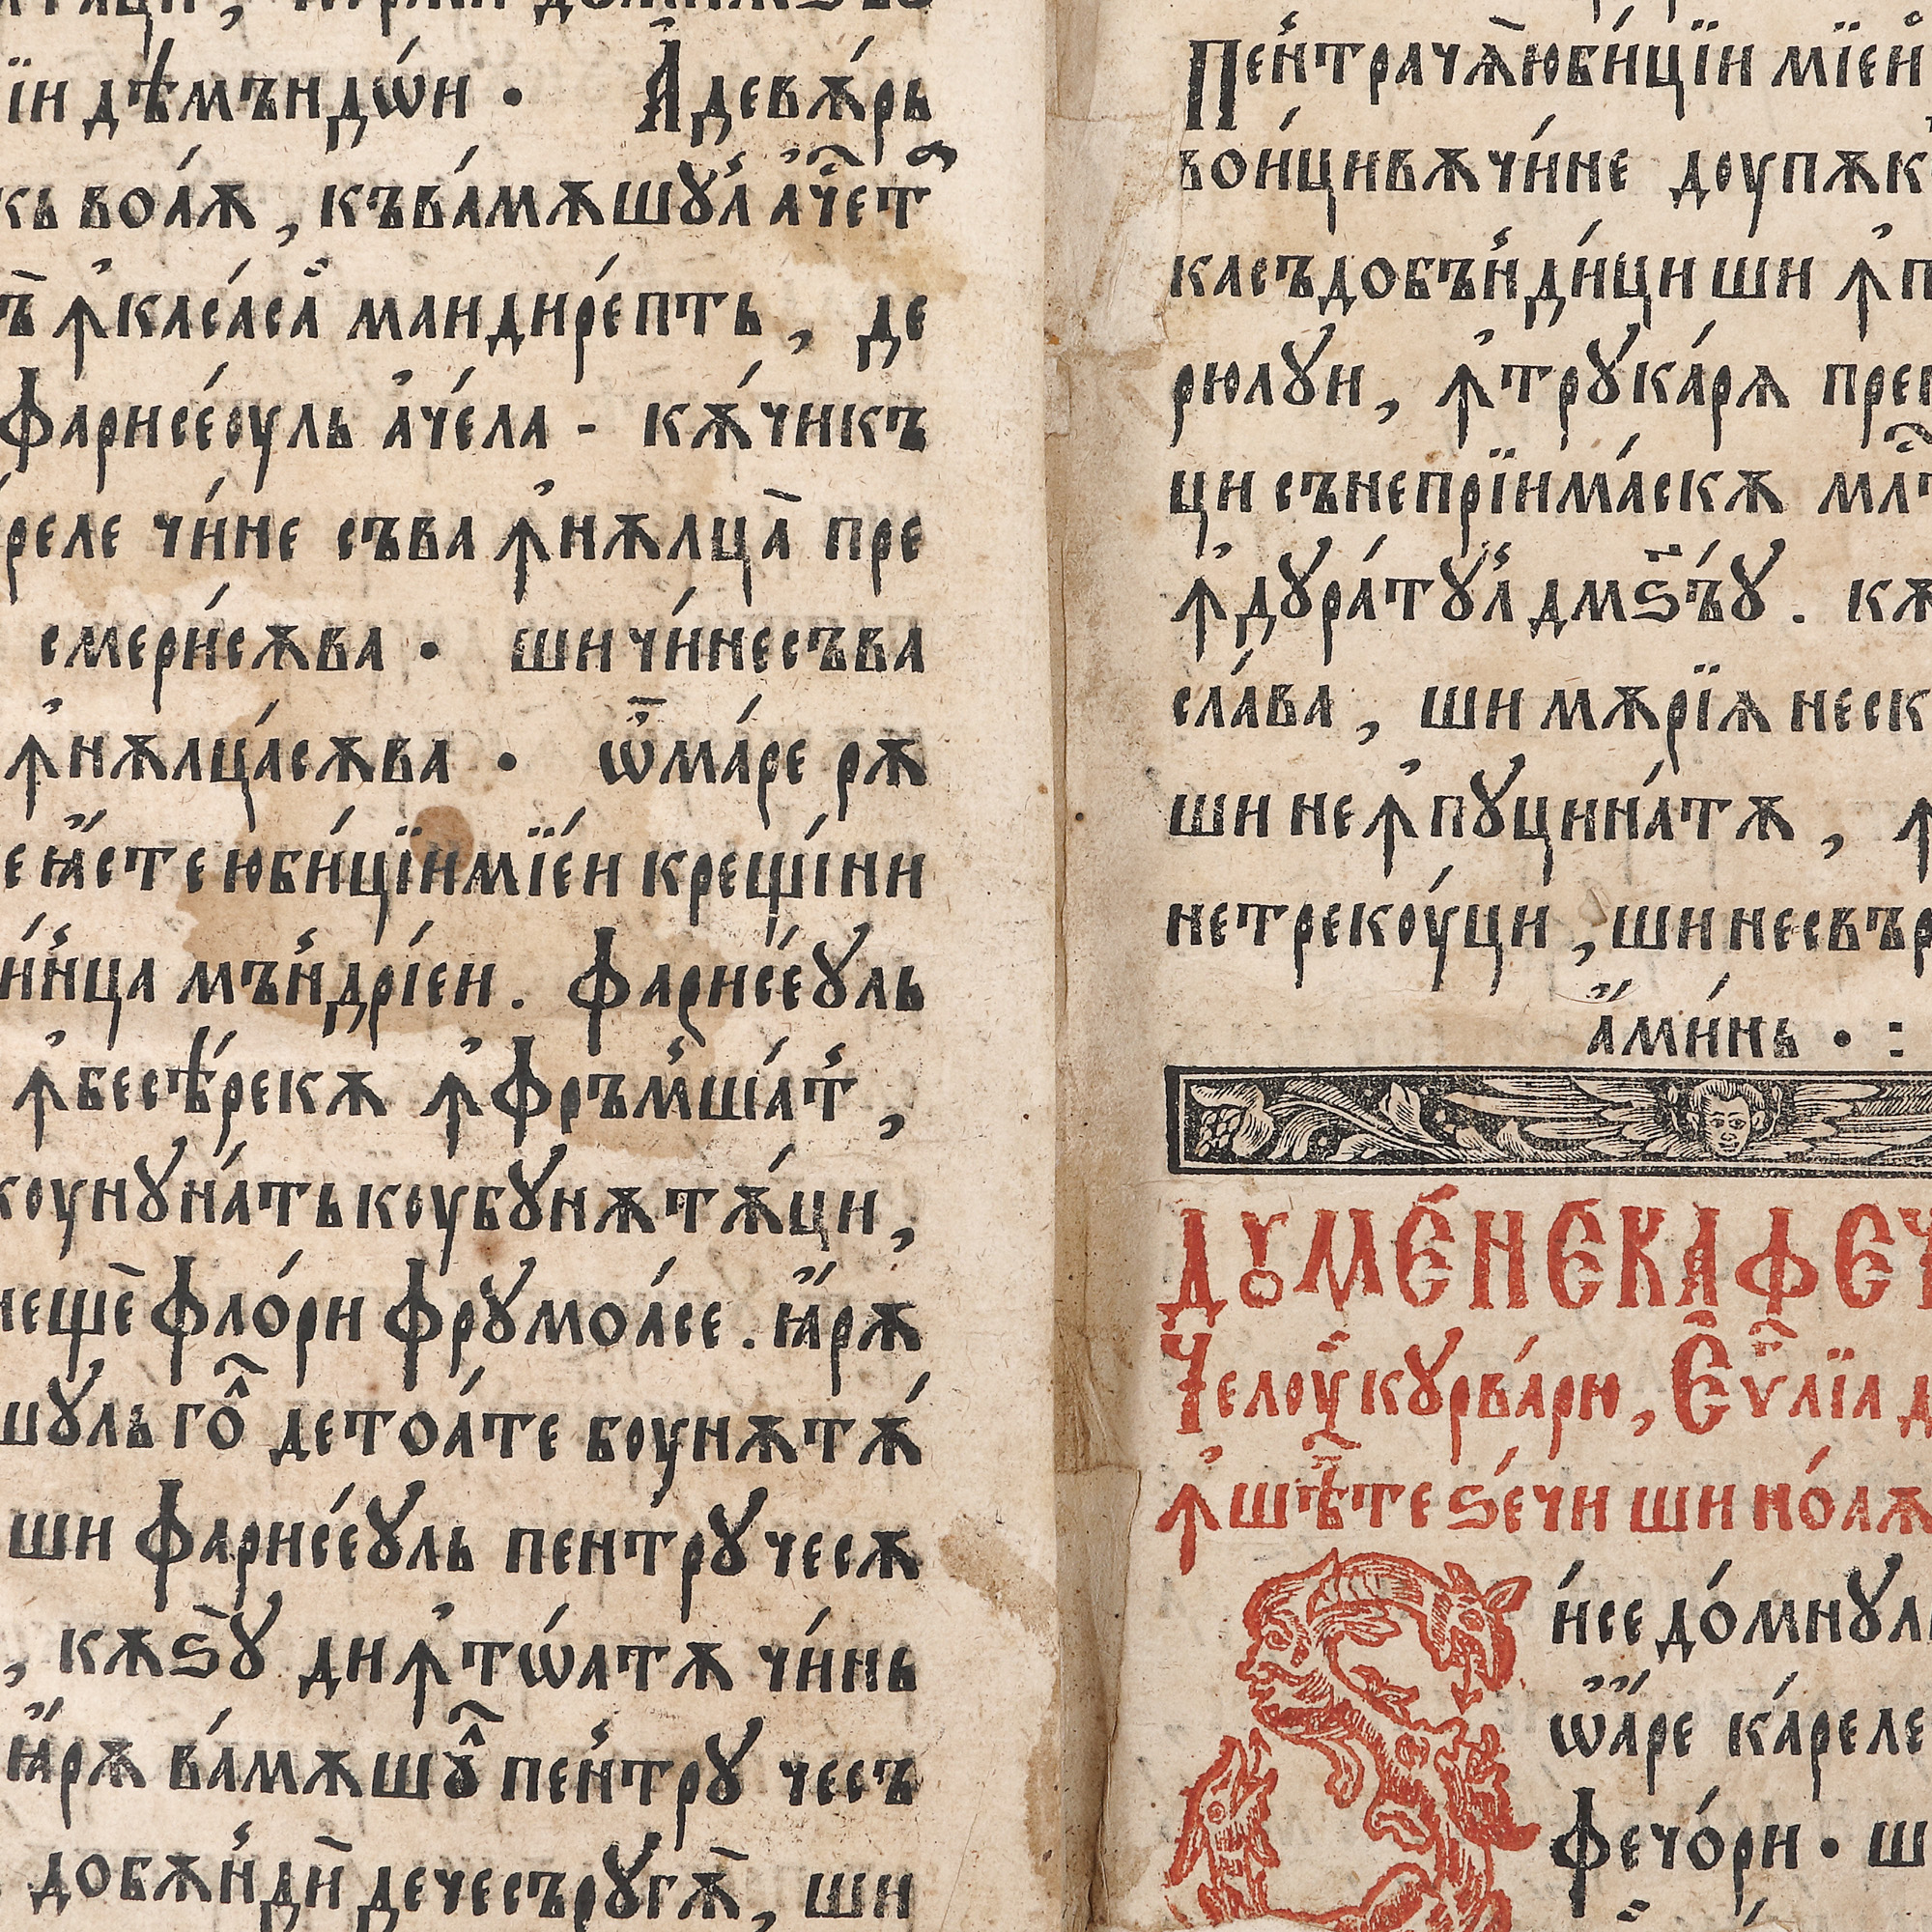 їи дѣмъндѡ́и • Адевѫ́рь
воа́ѫ, къва́мѫшꙋ́л ачет
ꙟкаса́са маидире́пть, де
Фарисе́оуль аче́ла - кѫ́чикъ
чи́не съва ꙟнѫлца̀ пре
смери́сѫва • ши чи́несъва
ꙟнѫлца́сѫва • ѿма́ре рѫ
ꙗ́сте юби́цїи мїе́и крещи́ни
мъндрі́еи. Фарисе́ꙋль
ꙟбесѣ́рекѫ ꙟфръмша́т,
коунꙋна́ть коубꙋнѫтѫ́ци,
фло́ри фрꙋмоа́се. ꙗ́рѫ
го̑ детоа́те боунѫтѫ́
ши Фарисе́ꙋль пентрꙋ чесѫ
, кѫѕꙋ̀ диꙟтѡ́атѫ чи́нь
ꙗ́рѫ ва́мѫшꙋ̑ пентрꙋ чесъ
добѫнди̇̀ дечесърꙋгѫ̀, ши
Пентрачѫ̀юби́цїи мїе́и
вои́цивѫчи́не доупѫк
касъдобънди́ци ши ꙟп
рюлꙋи, ꙟтрꙋка́рѧ пре
ци сънепрїима́скѫ
ꙟдꙋра́тꙋ́л дмѕъ́ꙋ. кѫ
сла́ва, ши мѫрїѧ неск
ши неꙟпꙋцина́тѫ, ꙟ
нетрекоу́ци, ши несвър
ами́нь • :
Дꙋме́нека феч
Челоу̑ кꙋрва́ри, Єѵ̑лїа д
ꙟшѣ̑те ѕе́чи ши но́аѫ
и́се до́мнꙋл
ѡа́ре ка́реле
фечо́ри • ш